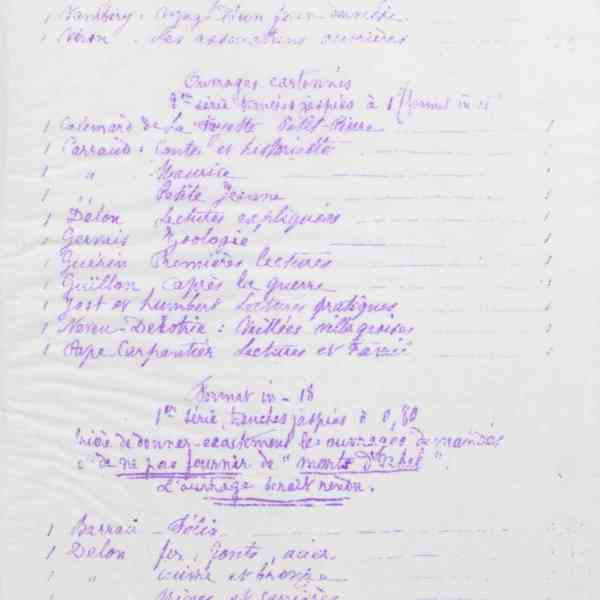 1 Vambéry : voyage d'un faux derviche
1 Véron . Les associations ouvrières
Ouvrages cartonnés
2me série tranches jaspées à 1f format in 12
1 Calemard de La Fayette Petit-Pierre 1
1 Carraud : Contes et historiettes 1
1 " Maurice 1
1 " Petite Jeanne 1
1 Delon Lectures expliquées 1
1 Gervais Zoologie 1
1 Guérin Premières lectures 1
1 Guillon après la guerre 1
1 Jost et humbert Lectures pratiques 1
1 : Veillées villageoises 1
1 Pape Carpantier Lectures et 1
Format in - 18
1re série, tranches jaspées à 0,80
Prière de donner exactement les ouvrages demandés
et de ne pas fournir de "
L'ouvrage serait rendu .
1 Barrau - Félix
1 Delon fer, fonte, acier
1 " cuivre et bronze
Mines et carrières